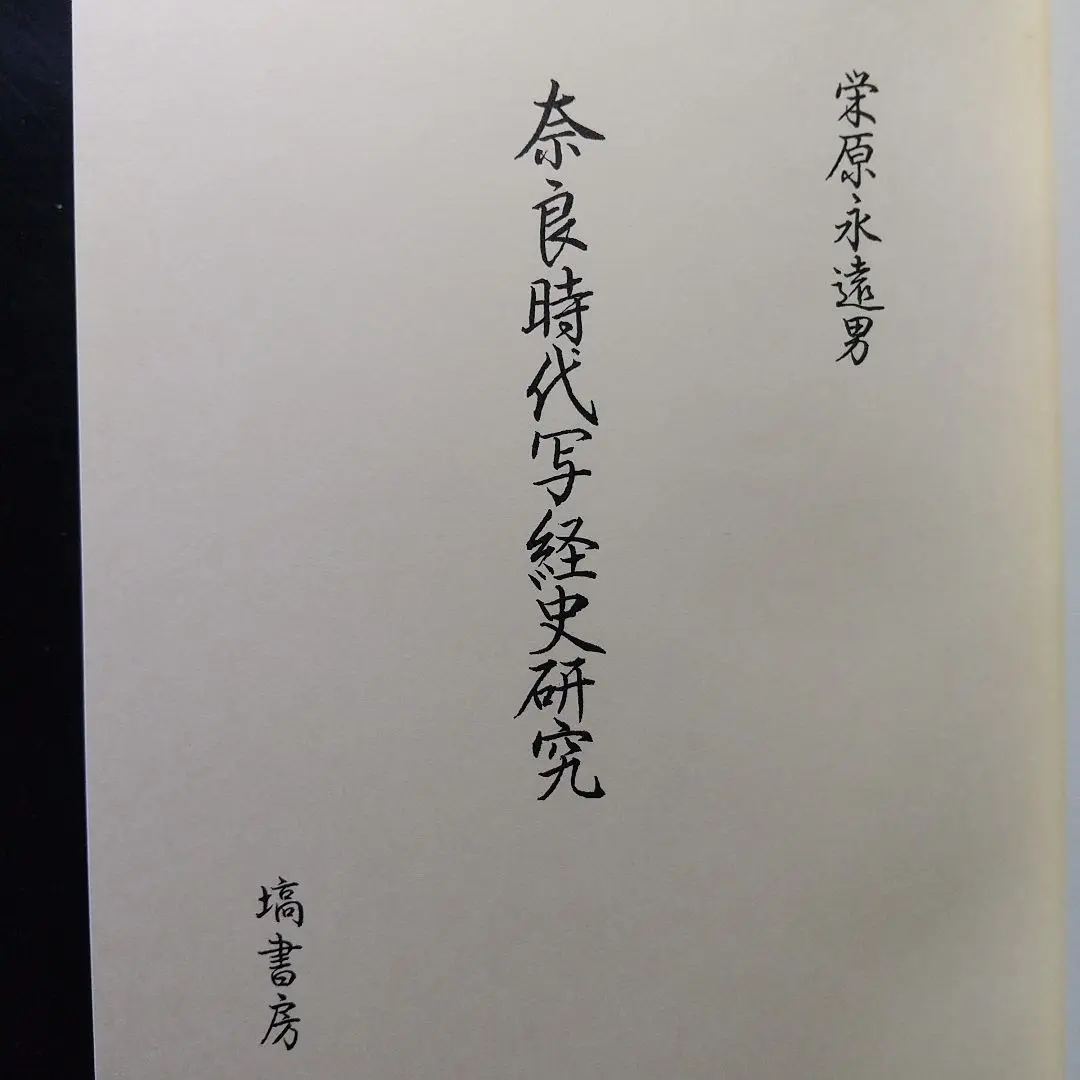 栄原永遠男
奈良時代写経史研究
塙書房